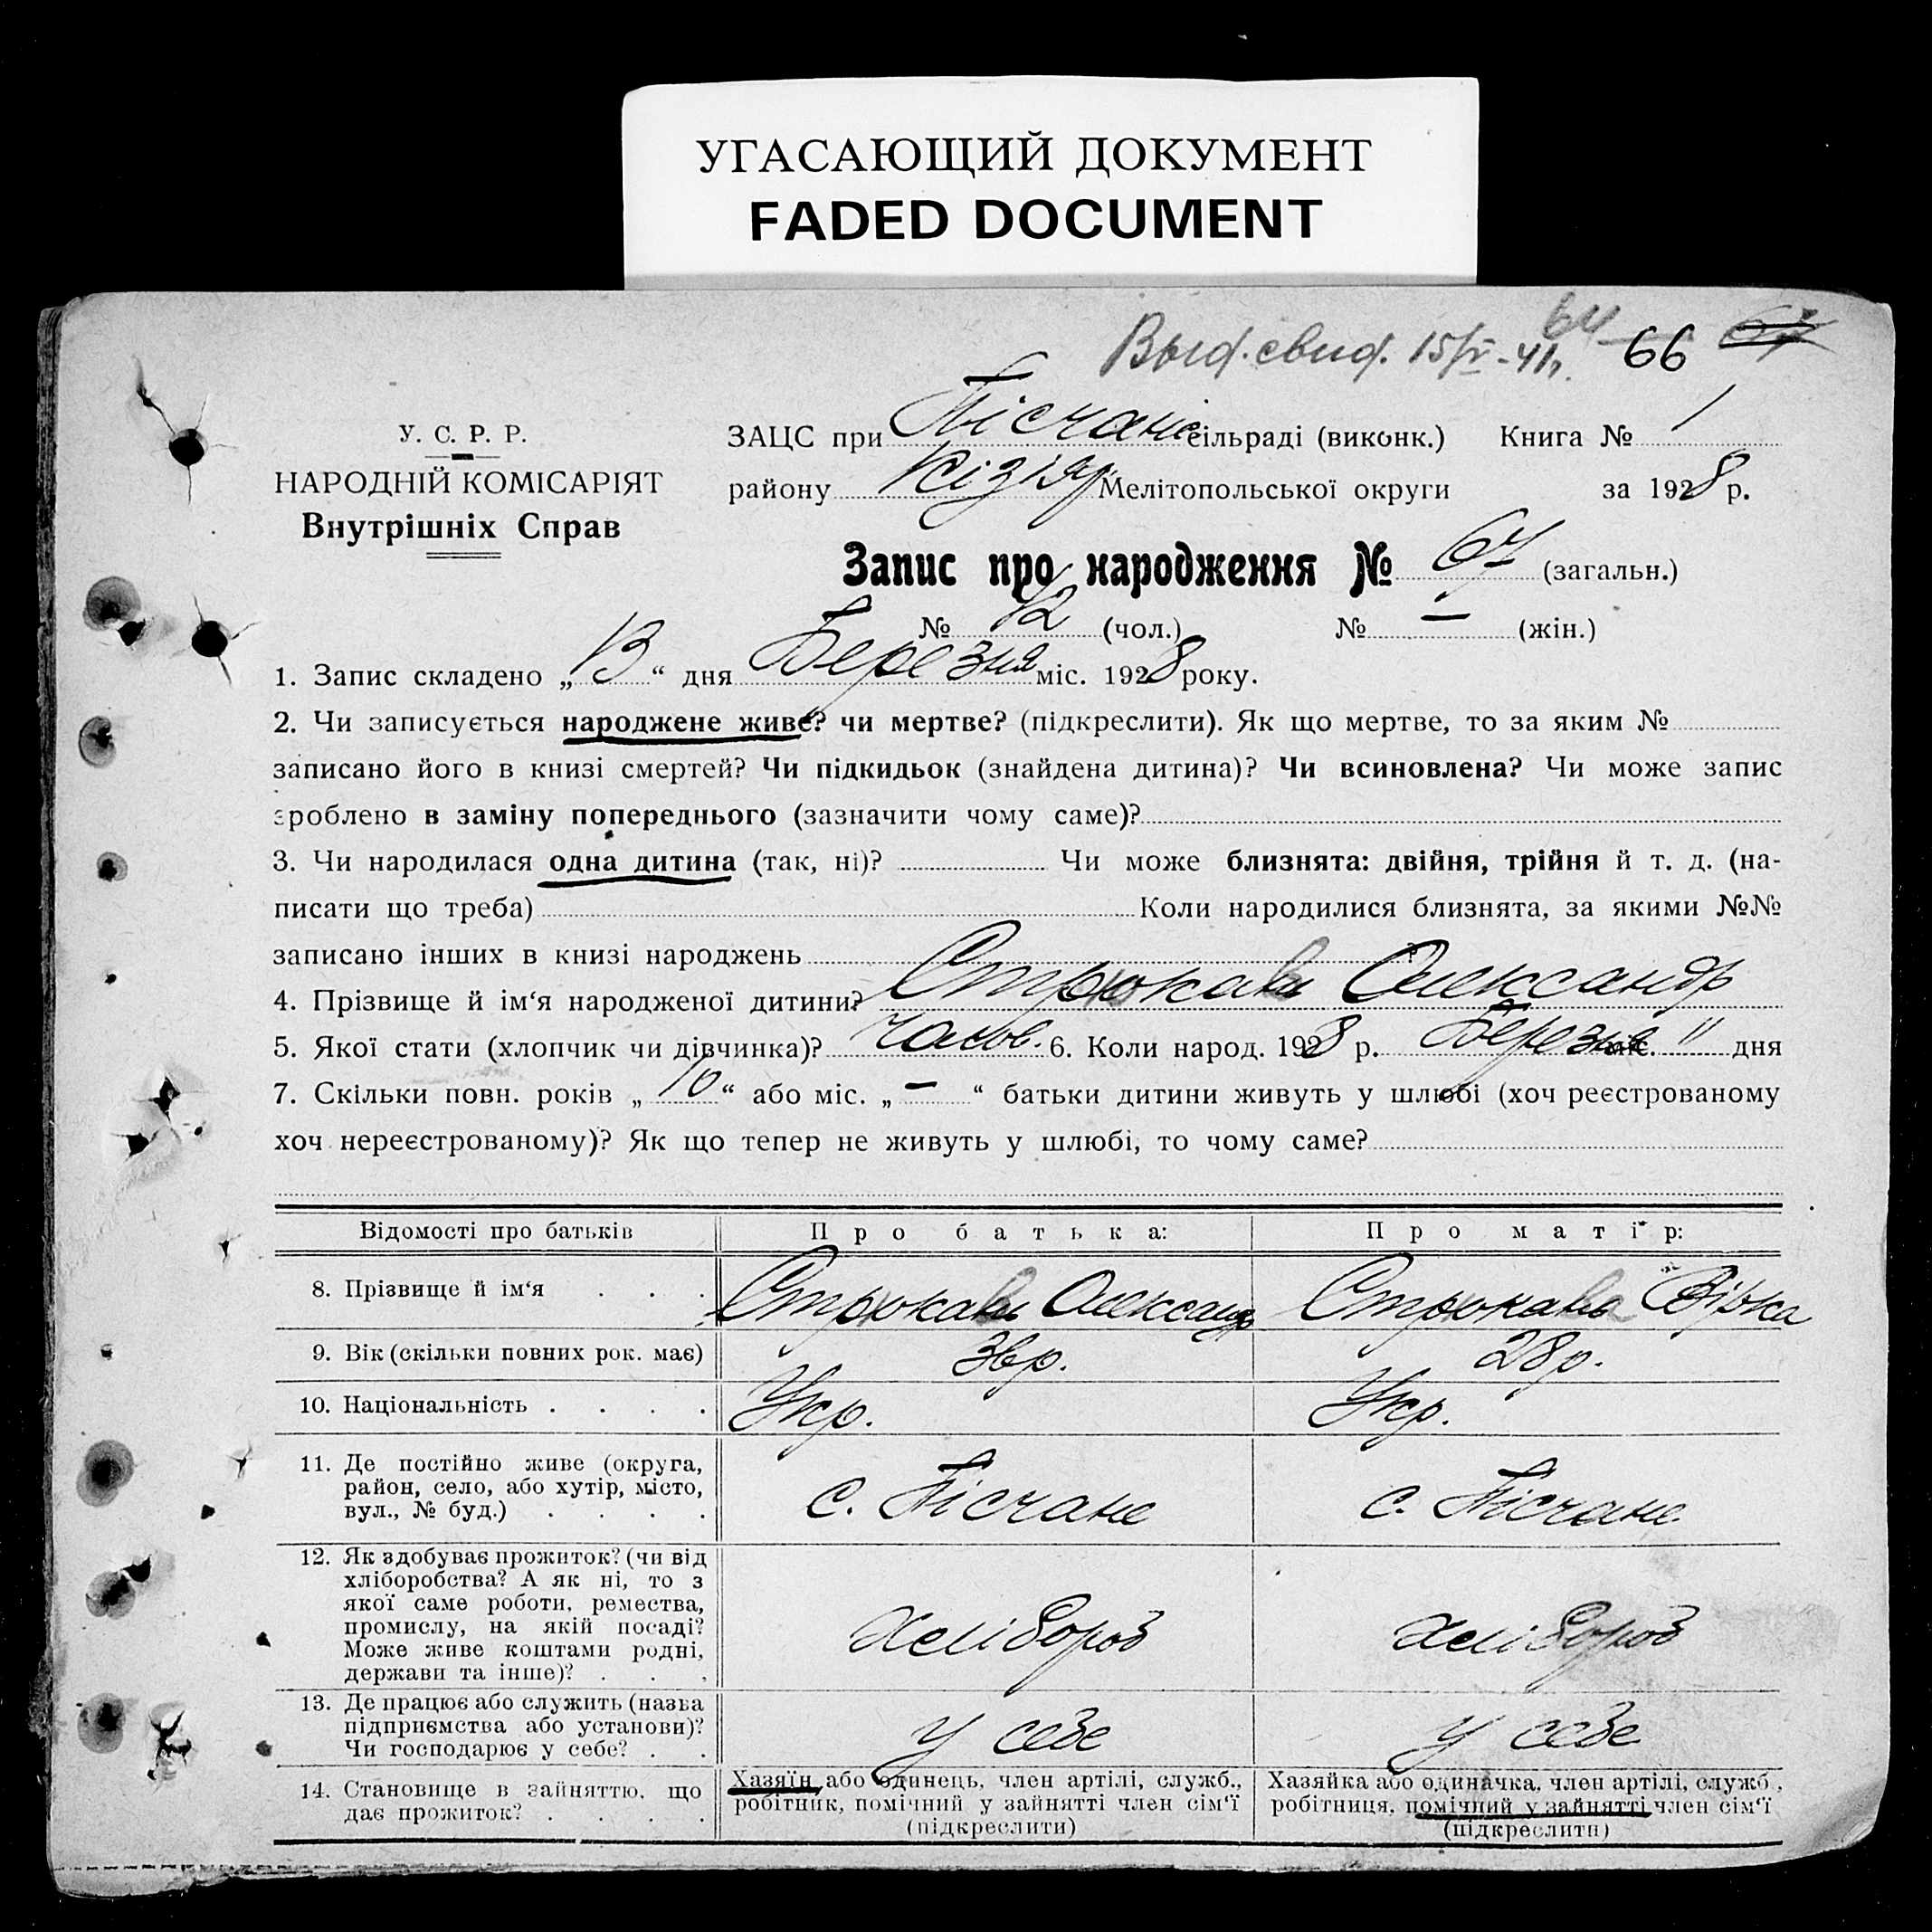 УГАСАЮЩИЙ ДОКУМЕНТ
FADED DOCUMENT
Выд. свид. 15/V - 41 г. 64 66 67
У. С. Р. Р.
НАРОДНІЙ КОМІСАРІЯТ
Внутрішніх Справ
ЗАЦС при Пісчане сільраді (виконк.) Книга № 1
району Кізіяр Мелітопольської округи за 1928 р.
Запис про народження № 67 (загальн.)
№ 42 (чол.) № — (жін.)
1. Запис складено „13“ дня Березня міс. 1928 року.
2. Чи записується народжене живе? чи мертве? (підкреслити). Як що мертве, то за яким №
записано його в книзі смертей? Чи підкидьок (знайдена дитина)? Чи всиновлена? Чи може запис
зроблено в заміну попереднього (зазначити чому саме)?
3. Чи народилася одна дитина (так, ні)? Чи може близнята: двійня, трійня й т. д. (на-
писати що треба) Коли народилися близнята, за якими №№
записано інших в книзі народжень
4. Прізвище й ім‘я народженої дитини? Александр
5. Якої стати (хлопчик чи дівчинка)? 6. Коли народ. 1928 р. Березня міс. 11 дня
7. Скільки повн. років „10“ або міс. „—“ батьки дитини живуть у шлюбі (хоч реєстрованому
хоч нереєстрованому)? Як що тепер не живуть у шлюбі, то чому саме?
Відомості про батьків Про батька: Про матір:
8. Прізвище й ім‘я . . .
9. Вік (скільки повних рок. має) 36 р. 28 р.
10. Національність . . . . Укр. Укр.
11. Де постійно живе (округа,
район, село, або хутір, місто,
вул., № буд.) . . . . с. Пісчане с. Пісчане
12. Як здобуває прожиток? (чи від
хліборобства? А як ні, то з
якої саме роботи, ремества,
промислу, на якій посаді?
Може живе коштами родні,
держави та інше)? . . . Хлібороб Хлібороб
13. Де працює або служить (назва
підприємства або установи)?
Чи господарює у себе? . . у себе у себе
14. Становище в зайняттю, що
дає прожиток? . . . .
Хазяїн або одинець, член артілі, служб.,
робітник, помічний у зайнятті член сім‘ї
(підкреслити)
Хазяйка або одиначка, член артілі, служб.,
робітниця, помічний у зайнятті член сім‘ї
(підкреслити)